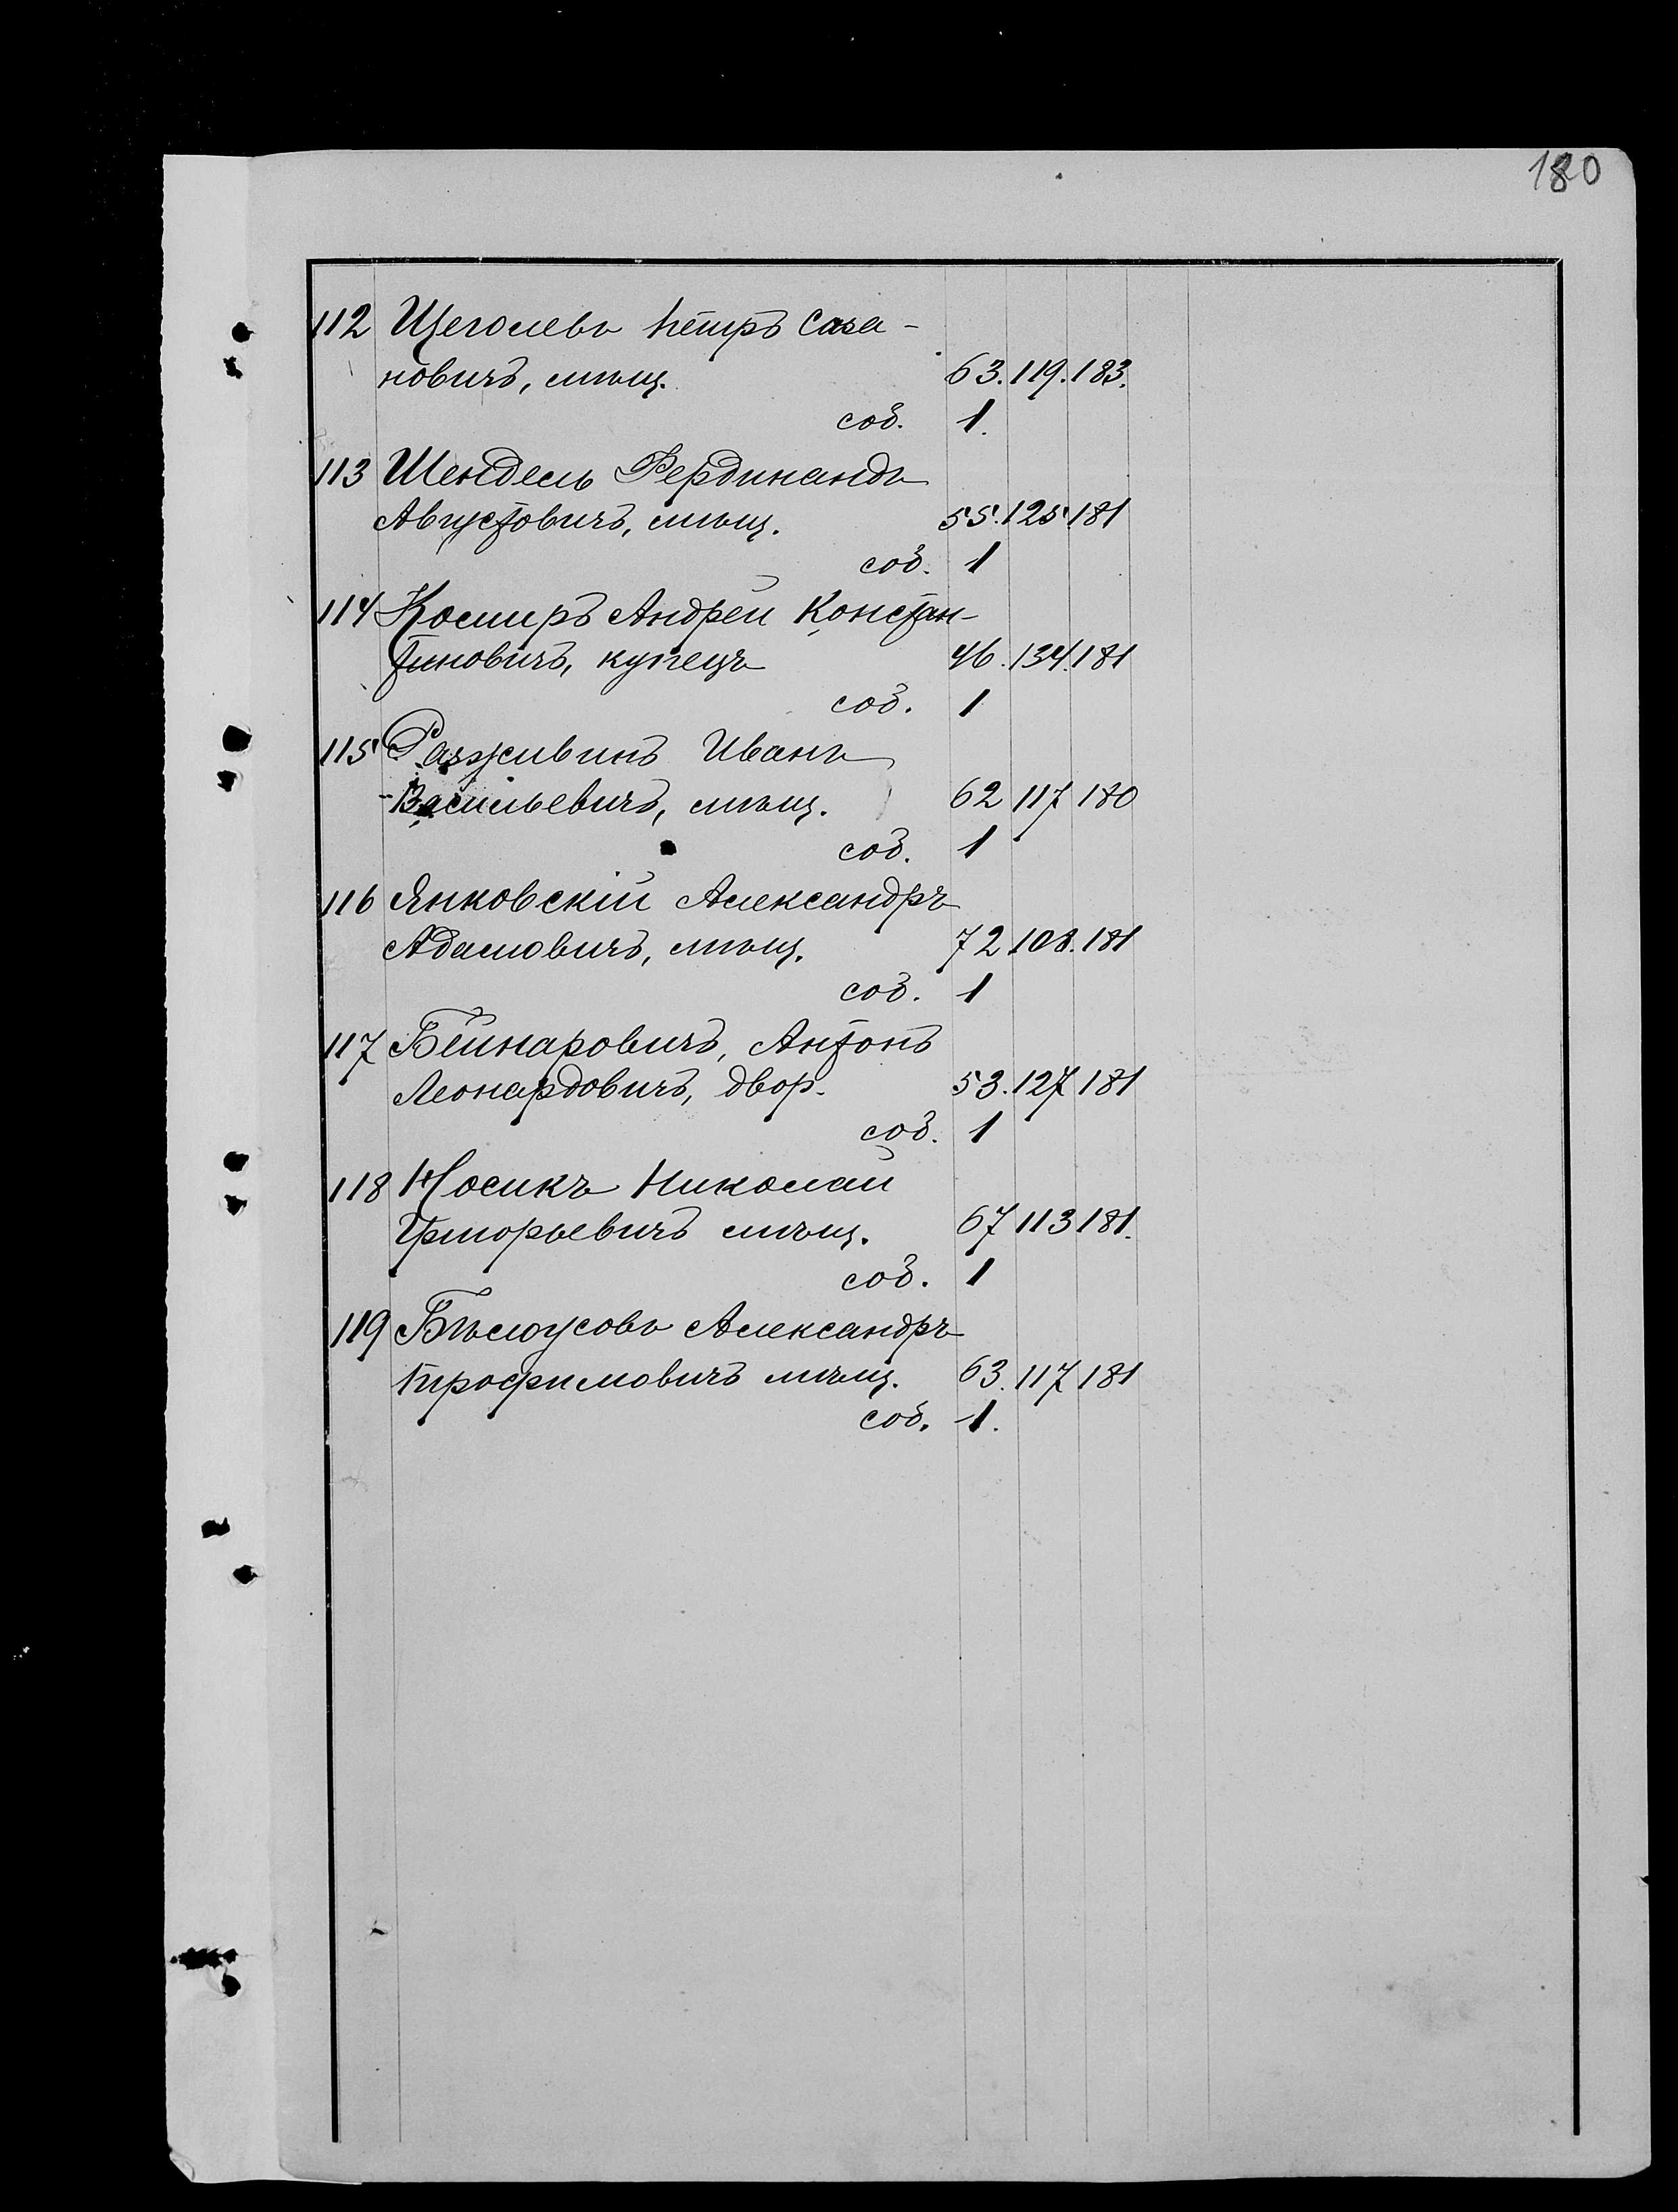 180
112 Щеголевъ Петръ Саза-
новичъ, мѣщ. 63. 119. 183.
соб. 1.
113 Шендель Фердинандъ
Августовичъ, мѣщ. 55. 125. 181
соб. 1
114 Космиръ Андрей Констан-
тиновичъ, купецъ 46. 134. 181
соб. 1
115 Разживинъ Иванъ
Васильевичъ, мѣщ. 62 117 180
соб. 1
116 Янковскій Александръ
Адамовичъ, мѣщ. 72 108. 181
соб. 1
117 Бейнаровичъ, Антонъ
Леонардовичъ, двор. 53. 127 181
соб. 1
118 Носикъ Николай
Григорьевичъ мѣщ. 67 113 181.
соб. 1
119 Бѣлоусовъ Александръ
Трофимовичъ мѣщ. 63. 117 181
соб. 1.